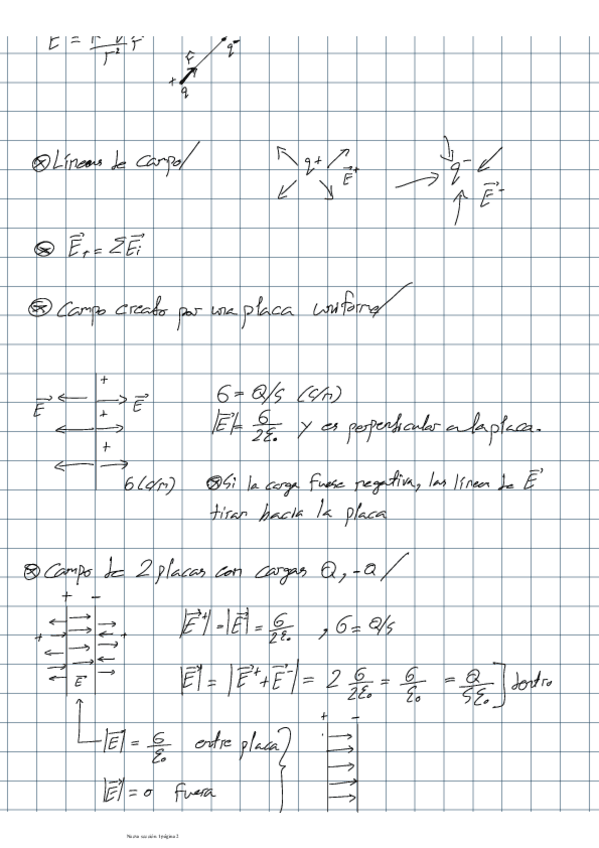 +
q
F
q⁻
⊗ Líneas de campo/
q+
E⃗⁺
q⁻
E⃗⁻
⊗ E⃗ₜ = ΣE⃗ᵢ
⊗ Campo creado por una placa uniforme/
+
E⃗
E⃗
+
+
σ (c/m)
σ = Q/S (c/m)
|E⃗| = σ/2ε₀ y es perpendicular a la placa.
⊗ Si la carga fuese negativa, las líneas de E⃗
tiran hacia la placa
⊗ Campo de 2 placas con cargas Q, -Q/
+ -
+
+
E⃗
|E⃗⁺| = |E⃗| = σ/2ε₀ , σ = Q/S
|E⃗| = |E⃗⁺ + E⃗⁻| = 2 σ/2ε₀ = σ/ε₀ = Q/Sε₀ ] dentro
|E⃗| = σ/ε₀ entre placa
|E⃗| = 0 fuera
+ -
Nueva sección 1 página 2